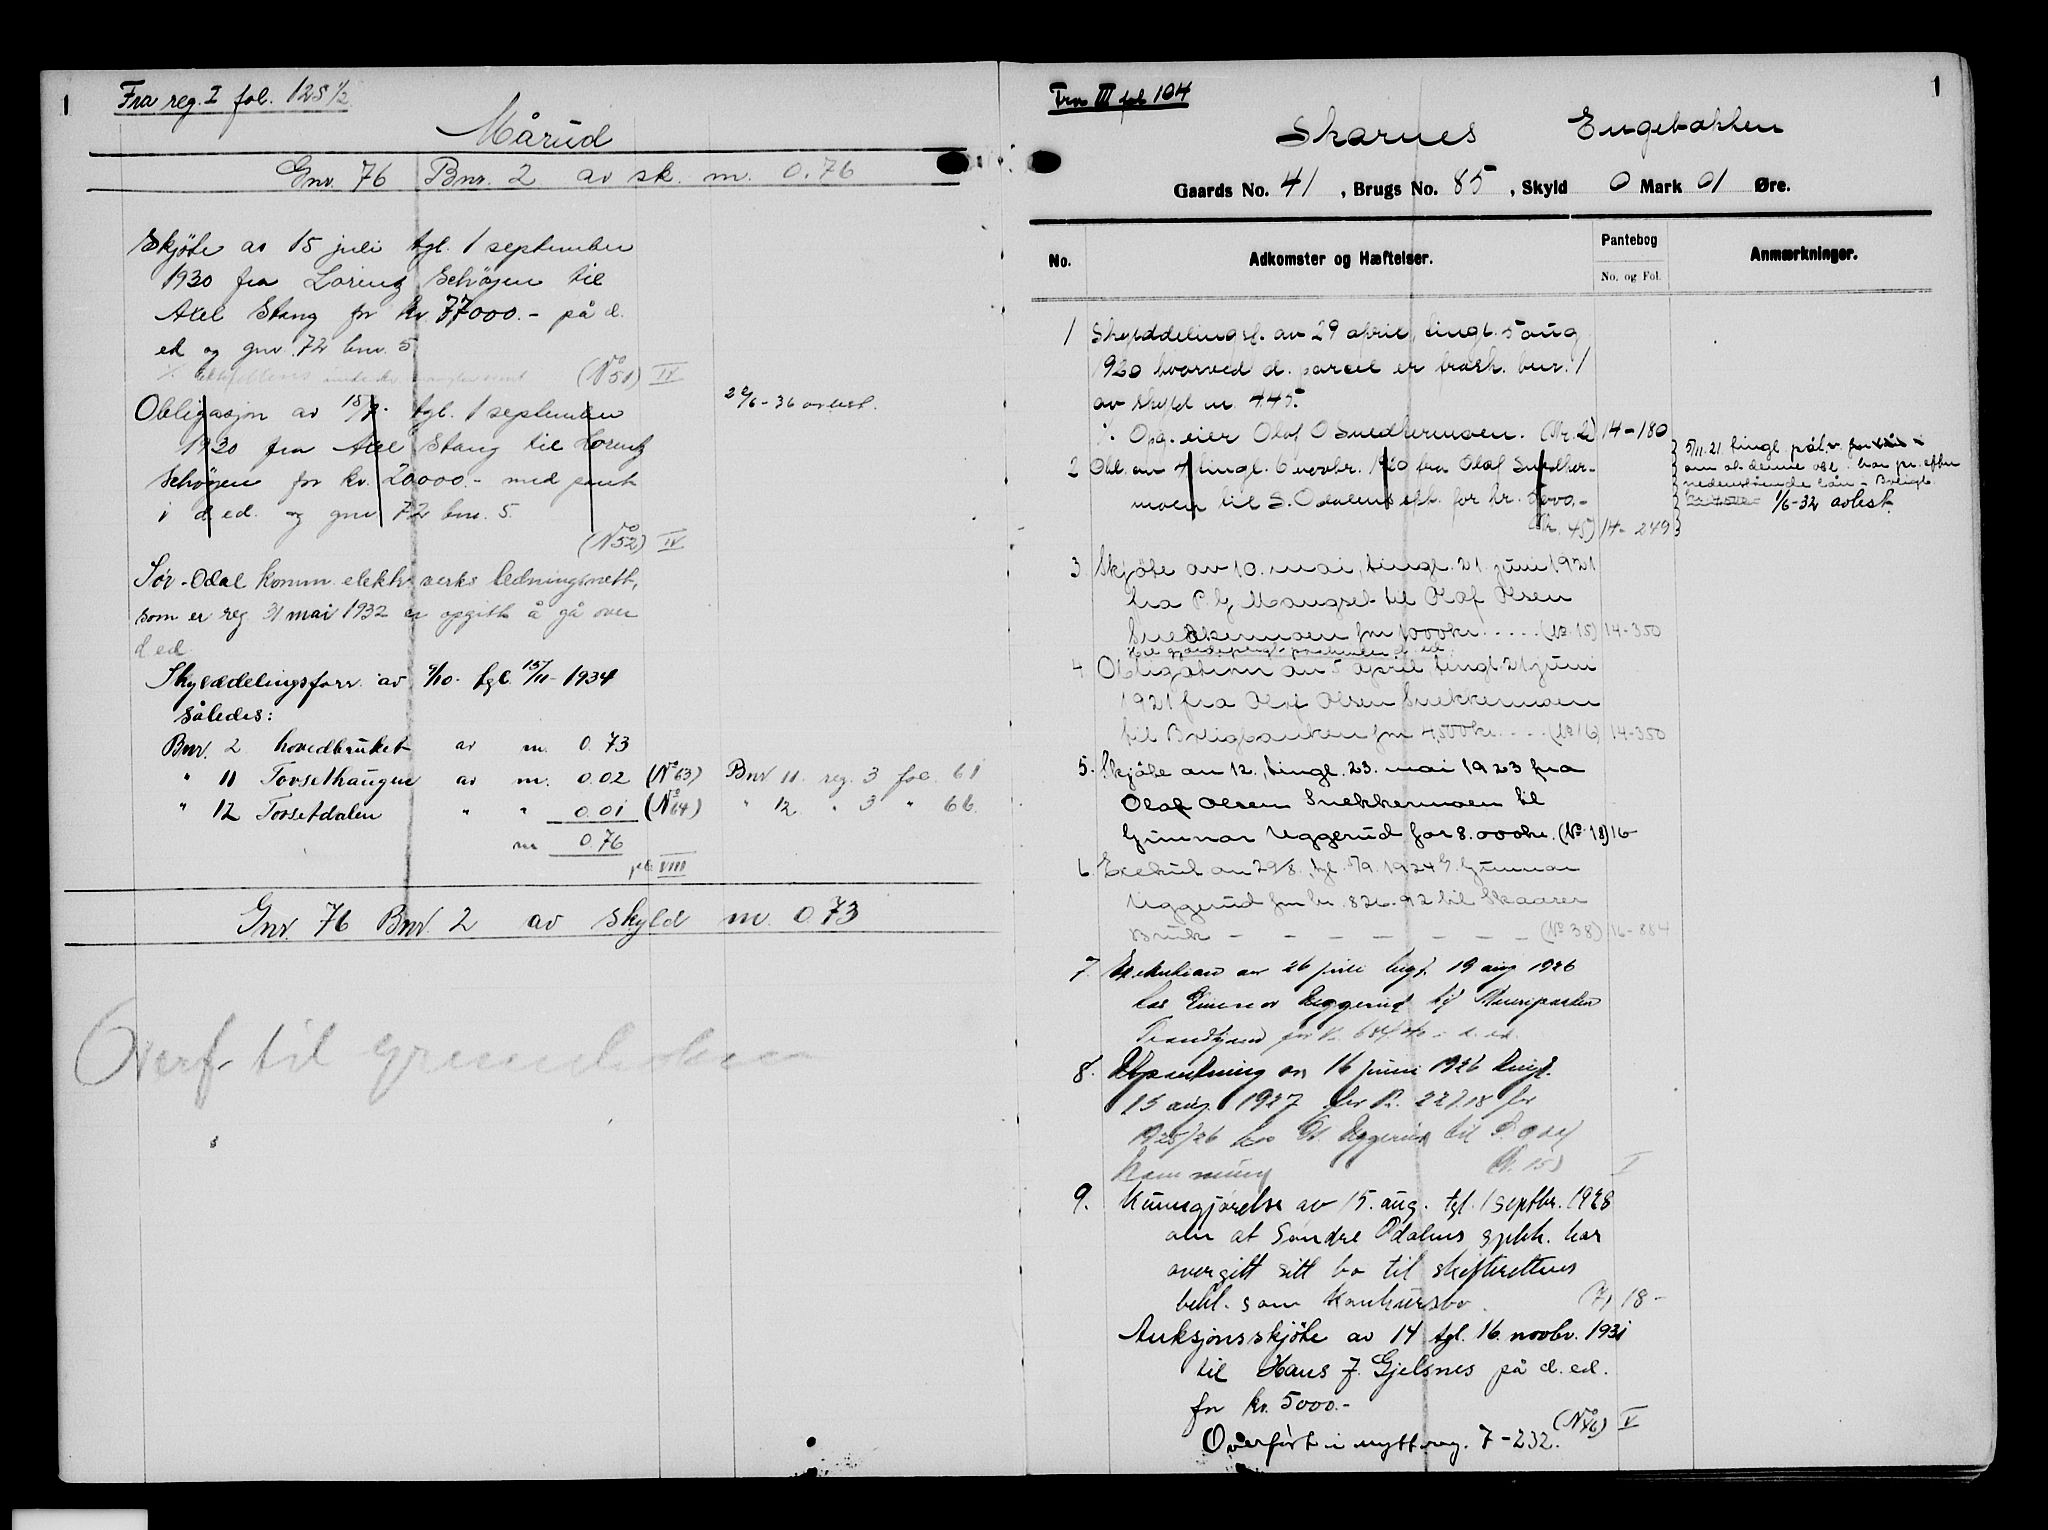 1
Fra reg. I fol. 125 1/2
Mårud
Gnr. 76 Bnr. 2 av sk. m. 0.76
Skjöte av 15 juli tgl. 1 september
1930 fra Lorentz Schøyen til
Axel Stang for kr. 77000.- på d.
ed og gnr. 72 bnr. 5
(No 51) IV
Obligasjon av 15/7. tgl. 1 september
1930 fra Axel Stang til Lorentz
Schøyen for kr. 20000.- med pant
i d. ed. og gnr 72 bnr. 5.
(No 52) IV
22/6-36 avlest.
Sør-Odal komm. elektr. verks ledningsnett,
som er reg 31 mai 1932 er opgitt å gå over
d ed
Skylddelingsforr. av 9/10. tgl. 15/11-1934
således:
Bnr. 2 hovedbruket av m. 0.73
" 11 Torsethaugen av m. 0.02 (No 63) Bnr 11. reg. 3 fol. 61
" 12 Torsetdalen " " 0.01 (No 64) " 12. " 3 " 66.
m 0.76
pb VIII
Gnr. 76 Bnr. 2 av skyld m. 0.73
Overf. til
1
Fra III fol 104
Skarnes Engebakken
Gaards No. 41, Brugs No. 85, Skyld 0 Mark 01 Øre.
No. Adkomster og Hæftelser. Pantebog No. og Fol. Anmærkninger.
1 Skylddelingsf. av 29 april, tingl. 5 aug
1920 hvorved d. parcel er frask. bnr. 1
av skyld m. 4.45.
% Opg. eier Olaf O Snedkermoen. (Nr. 2) 14-180
2 Obl. av 4 tingl. 6 novbr. 1920 fra Olaf Snedker-
moen til S. Odalens spk. for kr. 5000,-
Nr. 45) 14-249
5/11.21 tingl. påt.
om at denne obl. har pr. efter
nedenstående lån - Boligb.
1/6-32 avlest.
3. Skjöte av 10. mai, tingl. 21. juni 1921
fra P. G. Mangset til Olaf Olsen
Snekkermoen for 1000 kr. .... (No 15) 14-350
4 Obligation av 5 april, tingl. 21 juni
1921 fra Olaf Olsen Snekkermoen
til Boligbanken for 4,500 kr. ... (No 16) 14-350
5. Skjöte av 12., tingl. 23. mai 1923 fra
Olaf Olsen Snekkermoen til
Gunnar Uggerud for 8.000 kr. (No 18) 16-
6. Exekut av 29/8., tgl. 5/9. 1924 h. Gunnar
Uggerud for kr. 826.92 til Skaarer
Bruk - - - - - - - (No 38) 16-884
7. Exekution av 26 juli tingl. 19 aug 1926
hos Gunnar Uggerud til
8. Utpantning av 16 juni 1926 tingl.
15 aug. 1927 for kr. 227.18 for
1925/26 hos G. Uggerud til S. Odal
kommune (No 15) I
9. Kunngjørelse av 15. aug. tgl. 1 septbr. 1928
om at Søndre Odalens spbk. har
overgitt sitt bo til skifterettens
behl. som konkursbo. (7) 18-
Auksjonsskjöte av 14 tgl. 16. novbr. 1931
til Hans J. Gjelsnes på d. ed.
for kr. 5000.-
(No 46) V
Overført i nytt reg. 7-232.